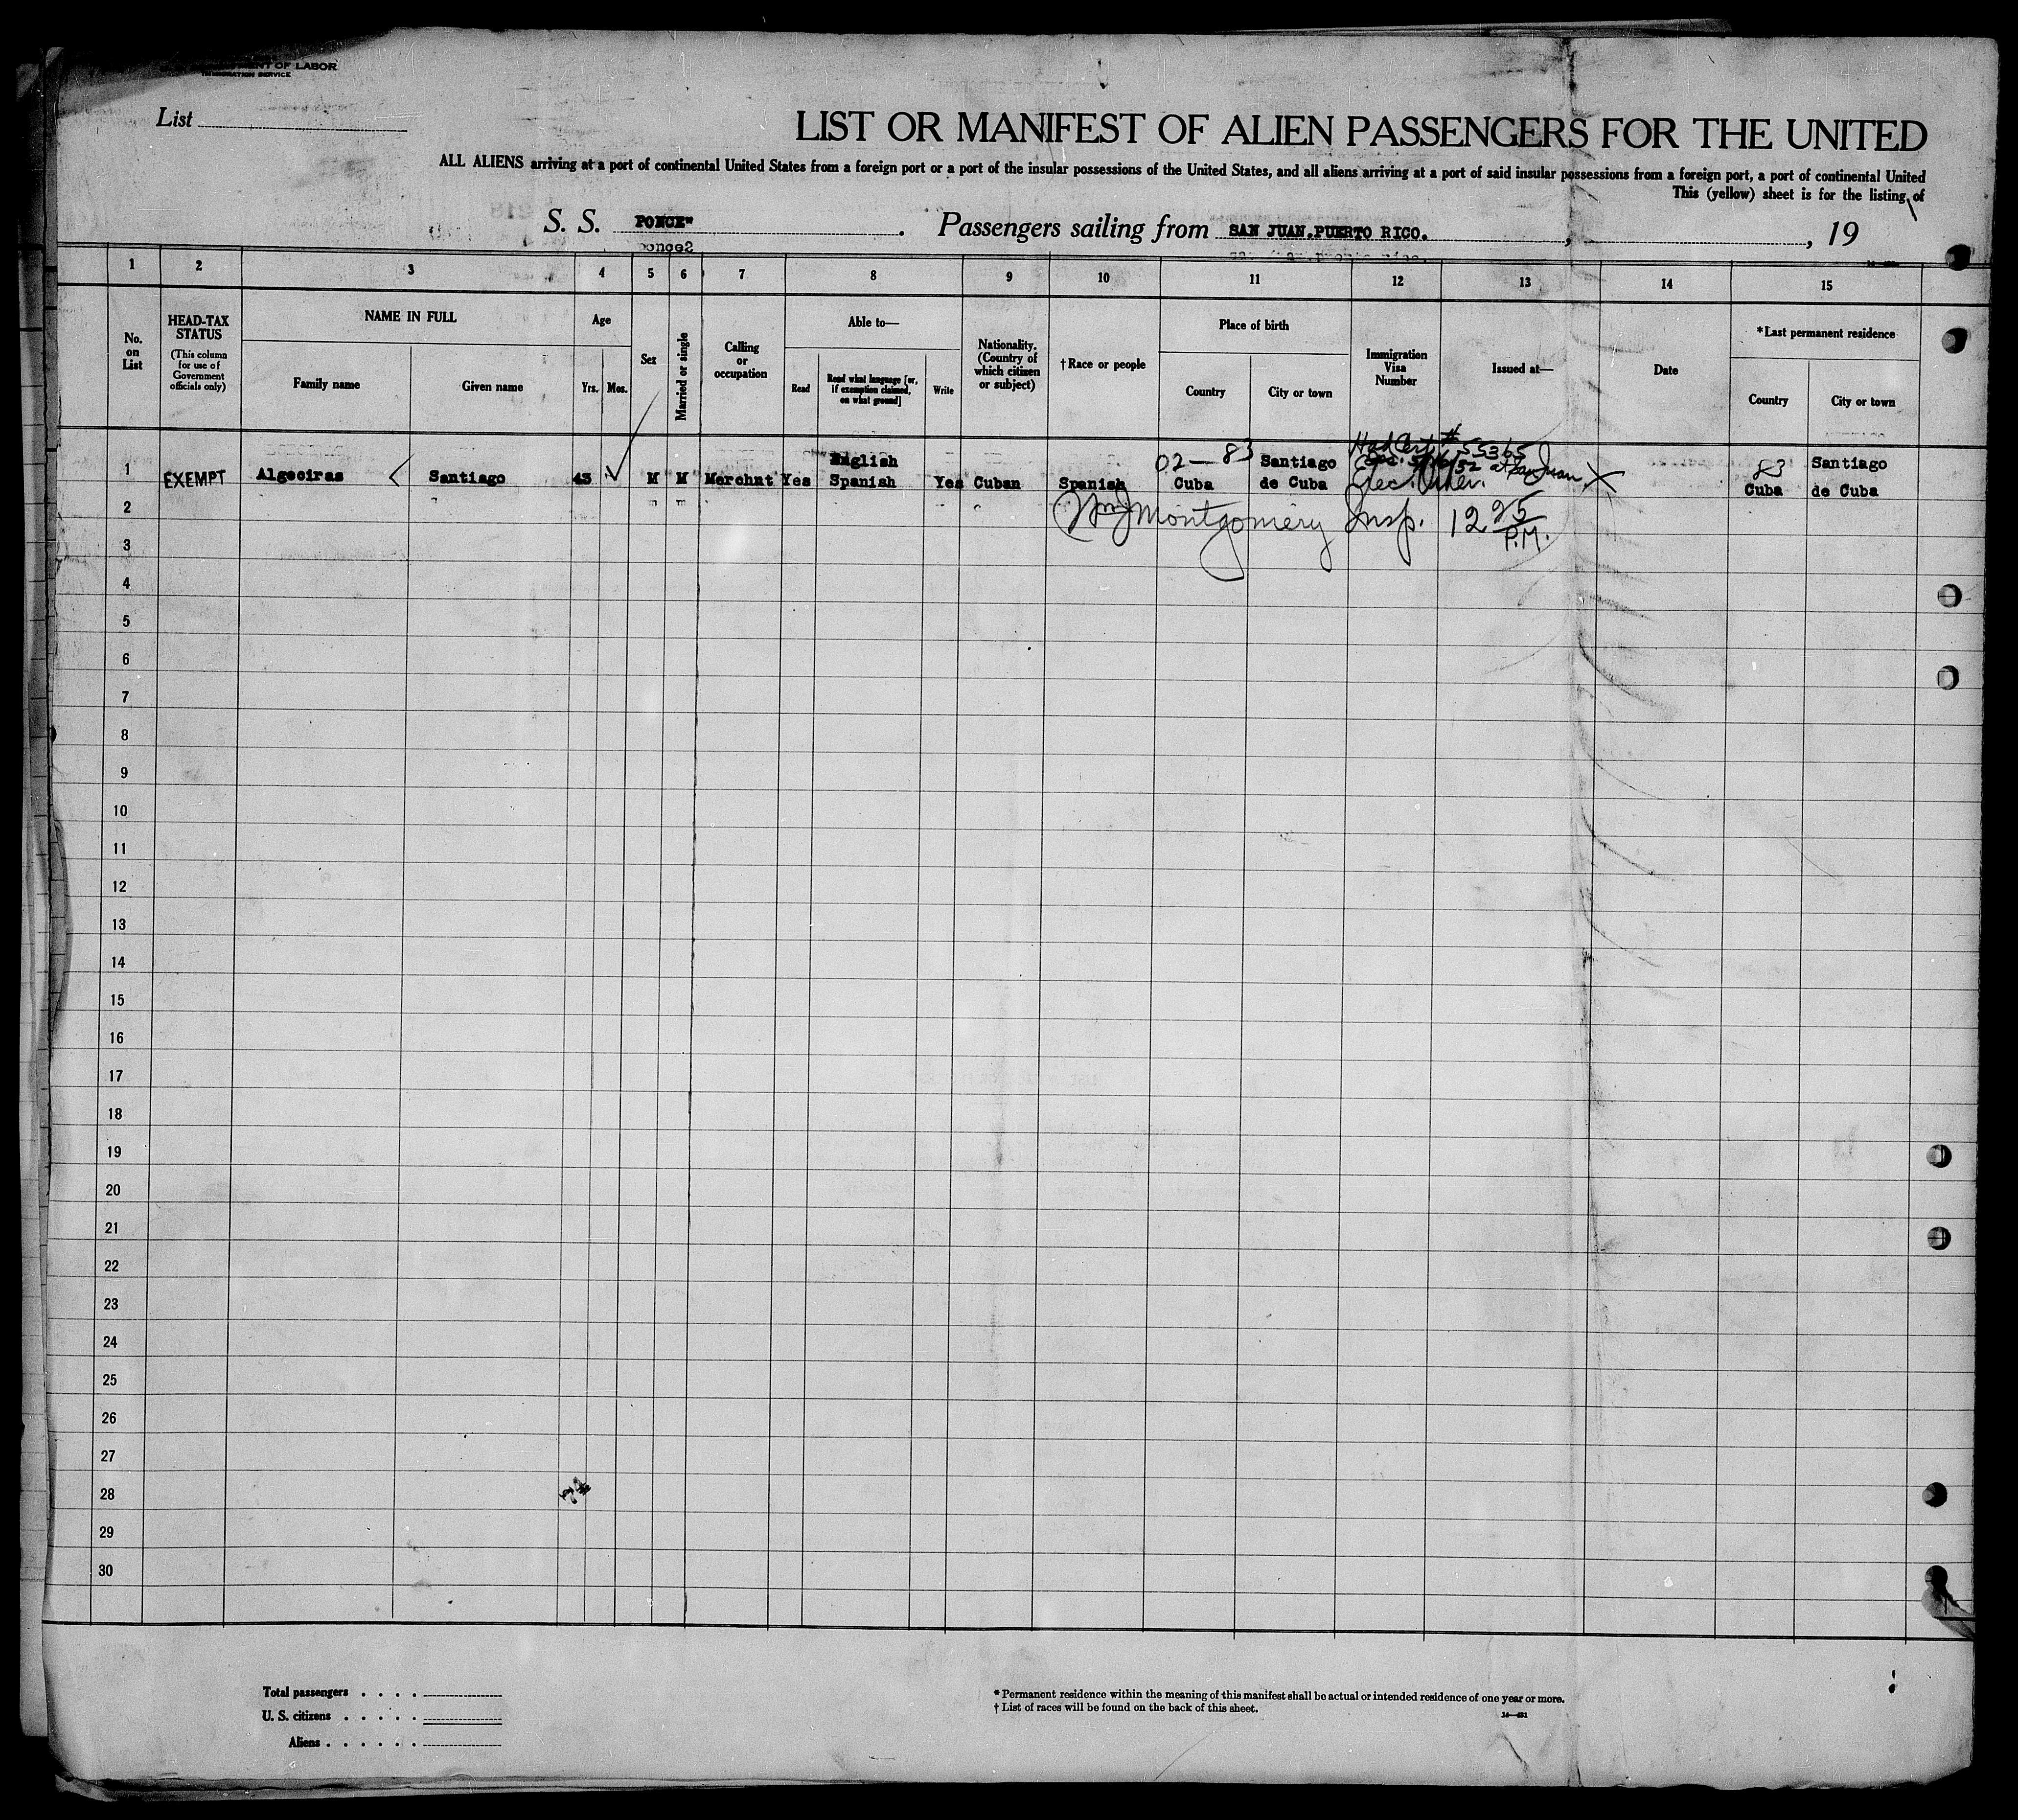 OF LABOR
IMMIGRATION SERVICE
List
LIST OR MANIFEST OF ALIEN PASSENGERS FOR THE UNITED
ALL ALIENS arriving at a port of continental United States from a foreign port or a port of the insular possessions of the United States, and all aliens arriving at a port of said insular possessions from a foreign port, a port of continental United
This (yellow) sheet is for the listing of
S. S. PONCE" . Passengers sailing from SAN JUAN.PUERTO RICO. , , 19
1 2 3 4 5 6 7 8 9 10 11 12 13 14 15
No. on List
HEAD-TAX STATUS
(This column for use of Government officials only)
NAME IN FULL
Family name
Given name
Age
Yrs.
Mos.
Sex
Married or single
Calling or occupation
Able to—
Read
Read what language [or, if exemption claimed, on what ground]
Write
Nationality. (Country of which citizen or subject)
†Race or people
Place of birth
Country
City or town
Immigration Visa Number
Issued at—
Date
*Last permanent residence
Country
City or town
1 EXEMPT Algeciras Santiago 43 M M Merchnt Yes English Spanish Yes Cuban Spanish 02—83 Cuba Santiago de Cuba # 55365 at San Juan X 83 Cuba Santiago de Cuba
2 Wm J Montgomery Insp. 12 25 P.M.
3
4
5
6
7
8
9
10
11
12
13
14
15
16
17
18
19
20
21
22
23
24
25
26
27
28
29
30
Total passengers . . . .
U. S. citizens . . . . .
Aliens . . . . . .
* Permanent residence within the meaning of this manifest shall be actual or intended residence of one year or more.
† List of races will be found on the back of this sheet.
14—431